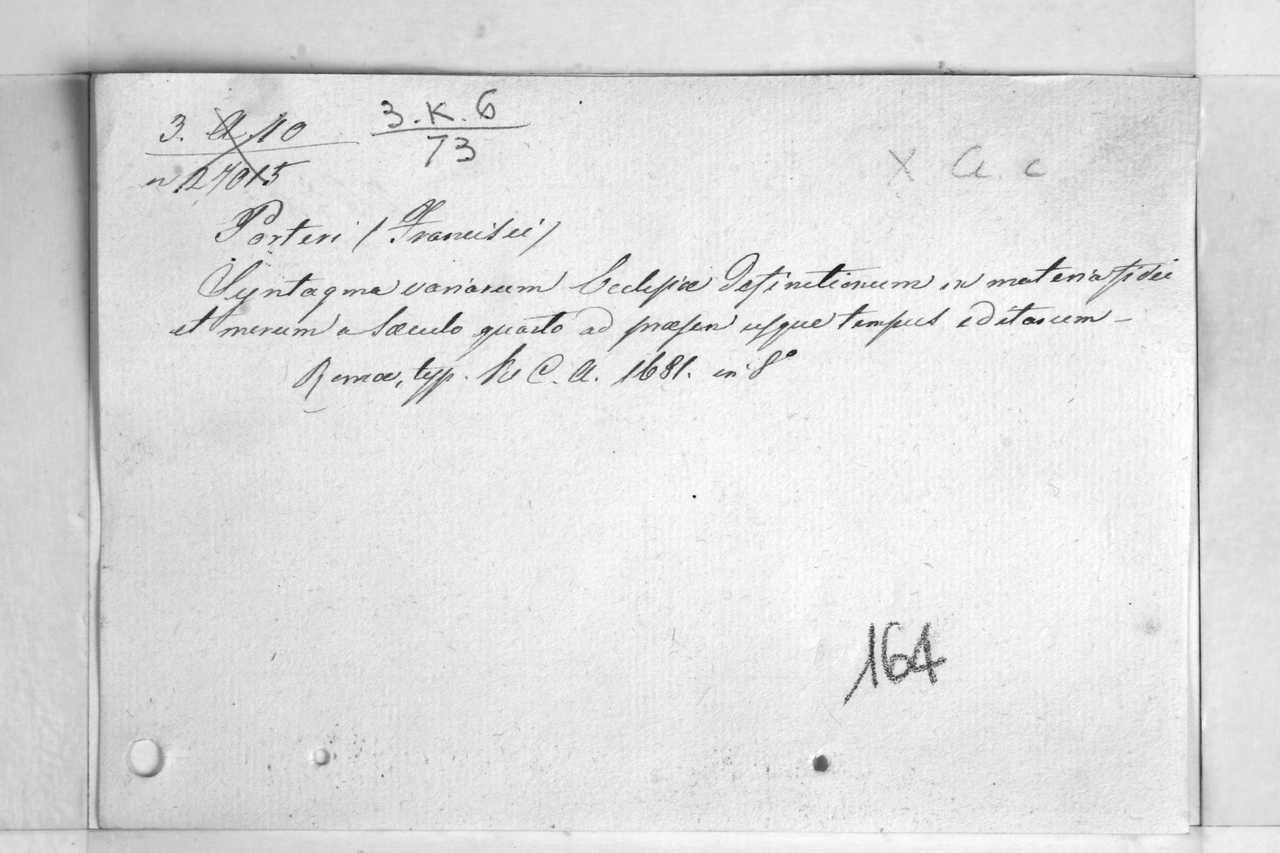 3. A. 10 3.K.6
n 27015 73
X a. c
Porteri (Francisci)
Syntagma variarum Ecclesiæ Definitionum in materia fidei
et morum a sæculo quarto ad præsen usque tempus editarum –
Romæ, typ. R C. A. 1681. in 8°
164